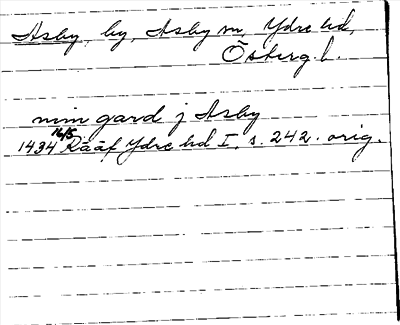 Asby, by, Asby sn, Ydre hd,
Österg. l.
min gard j Asby
1434 16/5 Rääf Ydre hd I, s. 242. orig.